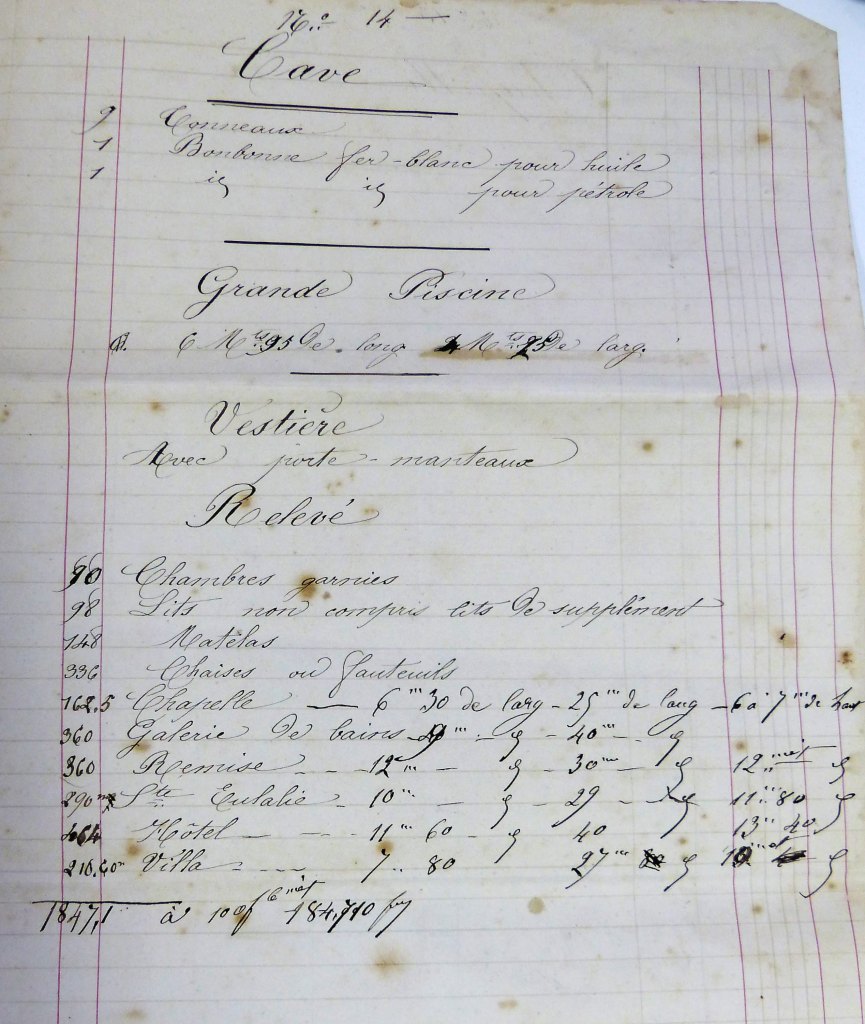 N.o 14 —
Cave
9 Tonneaux
1 Bonbonne fer-blanc pour huile
1 id id pour pétrole
Grande Piscine
6 Mts 95 De long Mts 25 De larg.
Vestière
Avec porte-manteaux
Relevé
90 Chambres garnies
98 Lits non compris lits De supplément
148 Matelas
336 Chaises ou fauteuils
162.5 Chapelle — 6 m 30 de larg - 25 m de long - 6 à 7 m de haut
360 Galerie De bains 9 m - d - 40 m - d
360 Remise - - 12 m - d - 30 m - d 12 mèt d
290 m Ste Eulalie - 10 m - d - 29 - d 11 m 80 d
464 Hôtel - - - 11 m 60 - d 40 13 m 40 d
210.60 m Villa - - - 7 .. 80 27 m d 10 mèt d
1847,1 à 100f le mèt 184,710 f